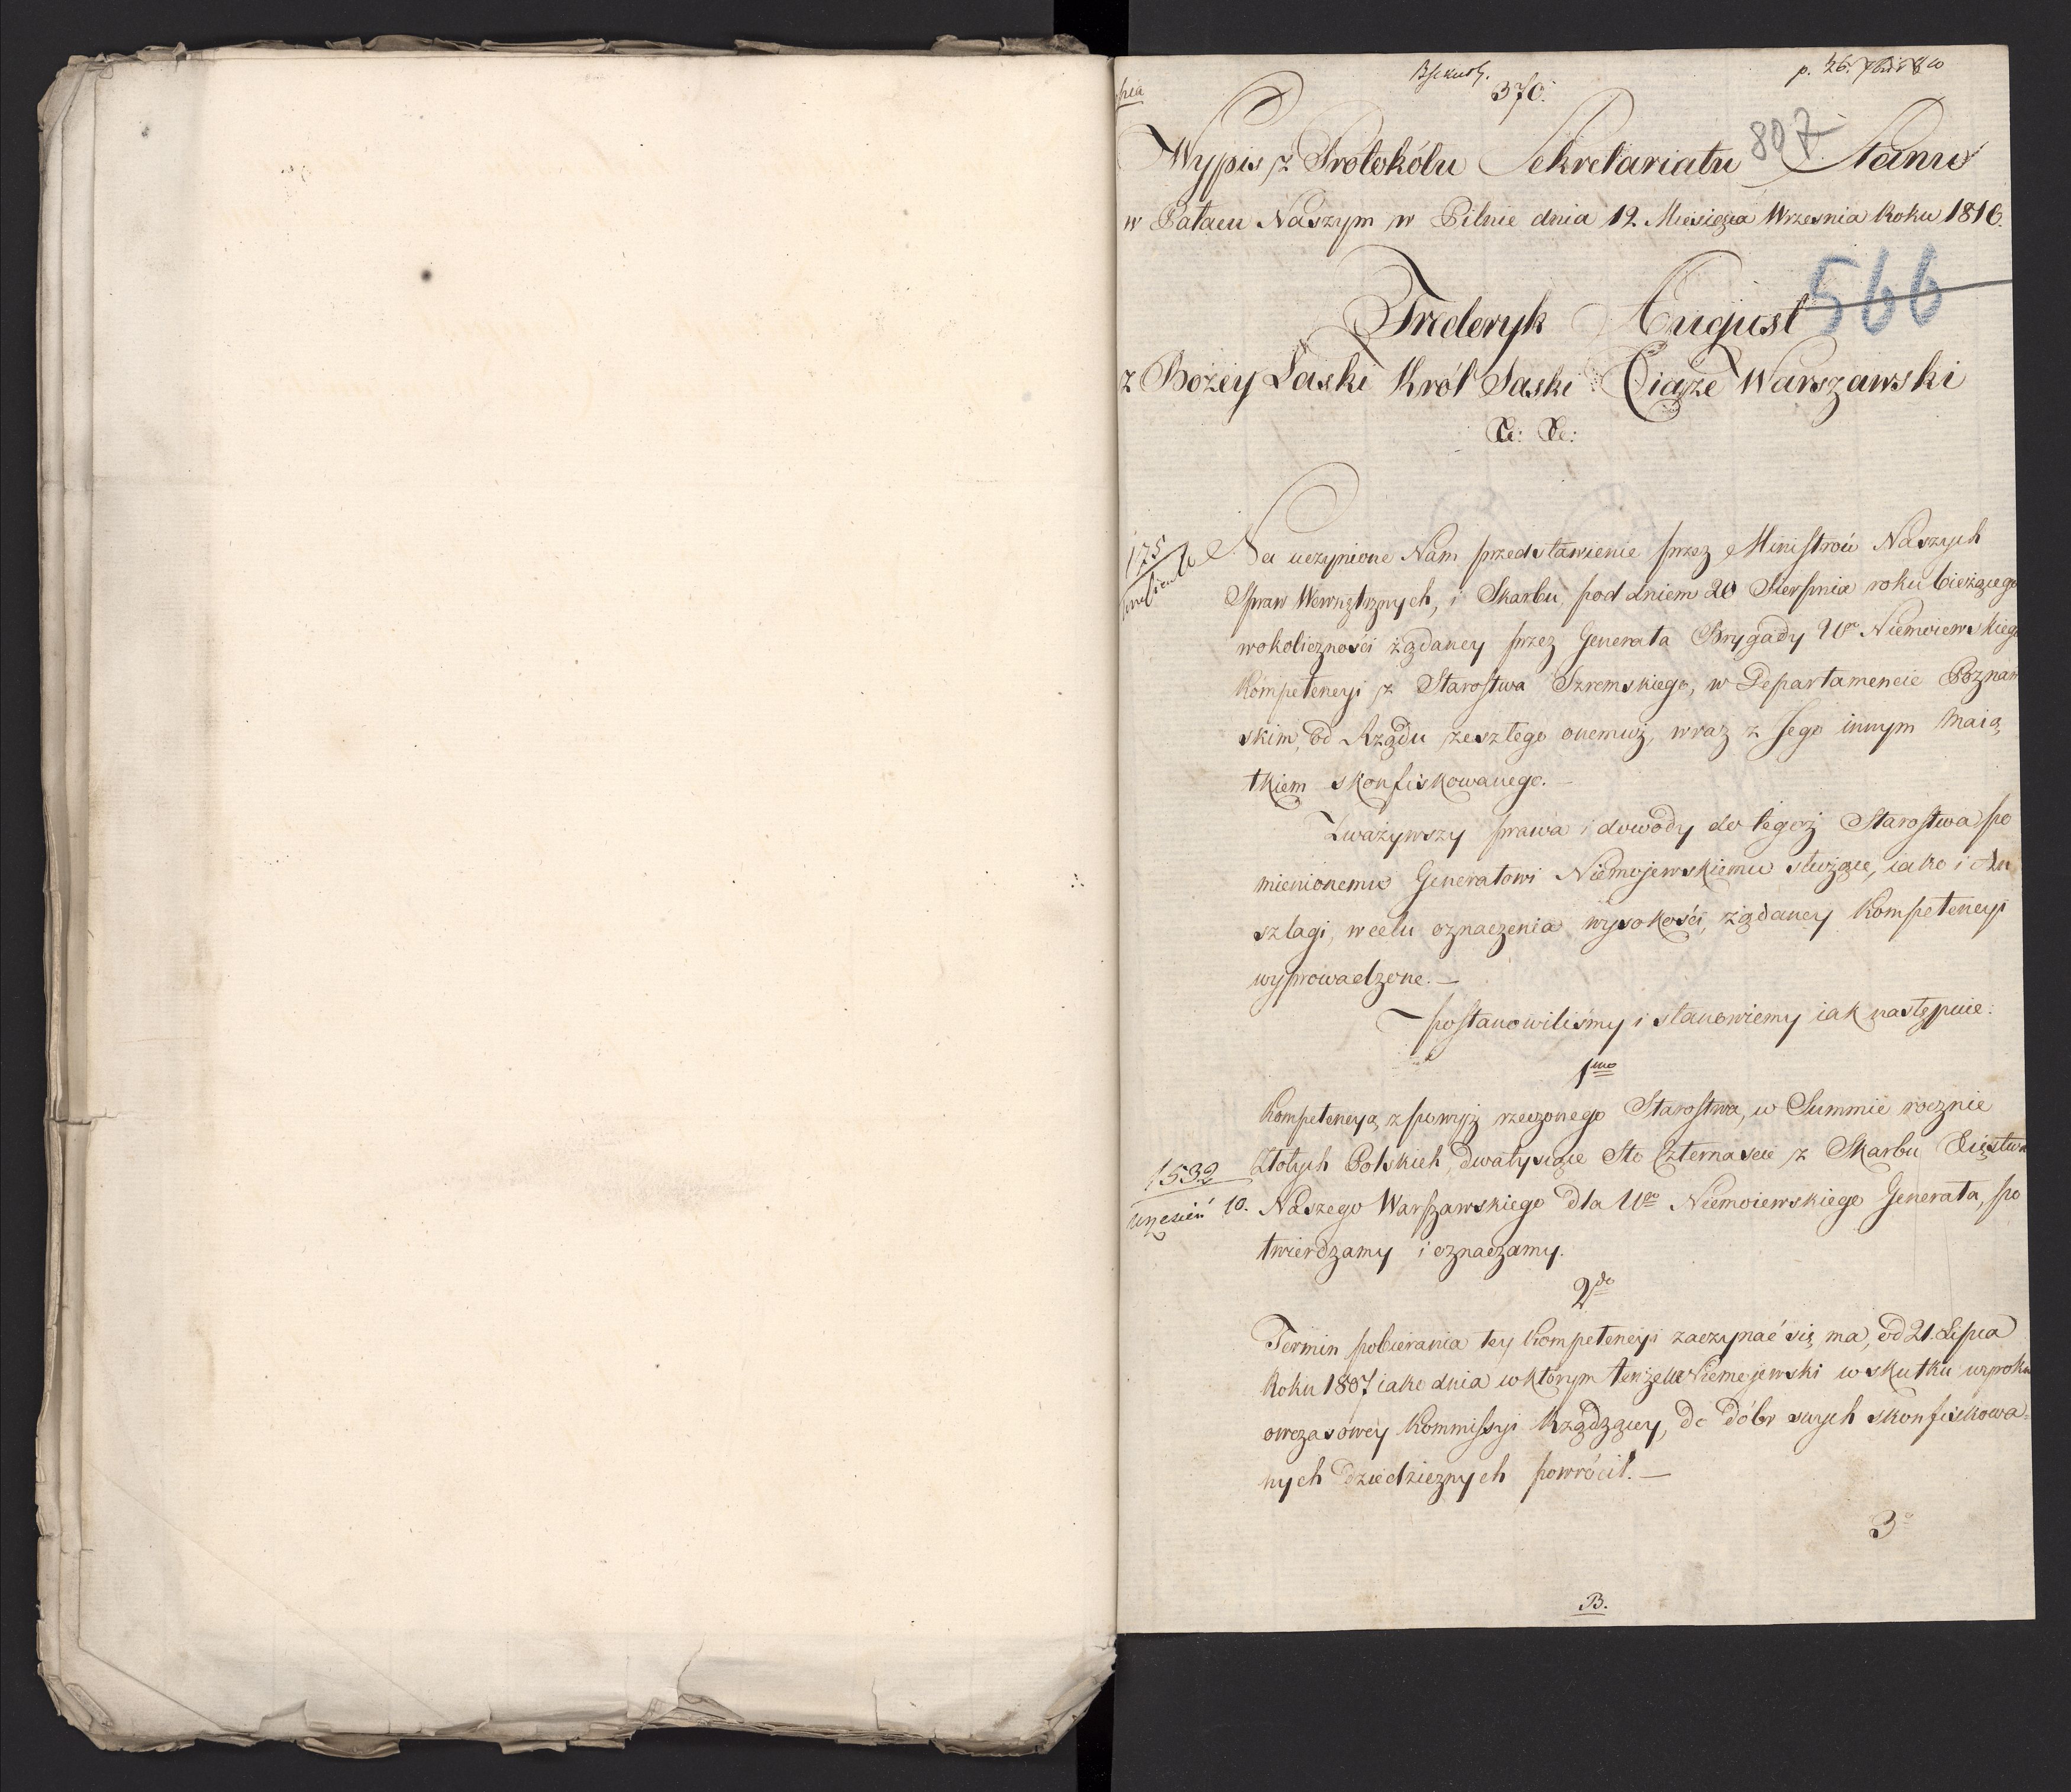 370.
p. 26. 7bris 810
807
Wypis z Protokółu Sekretariatu Stanu
w Pałacu Naszym w Pilnie dnia 12. Miesiąca Wrzesnia Roku 1810.
566
Fryderyk August
z Bożey Łaski Król Saski Xiąże Warszawski
&c: &c:
175
Na uczynione Nam przedstawienie przez Ministrów Naszych
Spraw Wewnętrznych, i Skarbu, pod dniem 20 Sierpnia roku bieżącego
wokoliczności żądaney przez Generała Brygady Ur Niemoiewskiego
Kompetencyi z Starostwa Szremskiego, w Departamencie Poznań
skim, od Rządu zeszłego onemuż, wraz z Jego innym Maią
tkiem skonfiskowanego. —
Zważywszy prawa i dowody do tegoż Starostwa po
mienionemu Generałowi Niemojewskiemu służące, iako i An
szlagi, w celu oznaczenia wysokości, żądaney Kompetencyi
wyprowadzone. —
postanowiliśmy i stanowiemy iak następuie:
1mo
Kompetencyą z powyż rzeczonego Starostwa, w Summie rocznie
Złotych Polskich, dwatysiące Sto Czternascie z Skarbu Xięstwa
1532
Wrzesień 10.
Naszego Warszawskiego dla Ugo Niemoiewskiego Generała, po
twierdzamy i oznaczamy.
2do
Termin pobierania tey Kompetencyi zaczynać się ma, od 21. Lipca
Roku 1807 iako dnia w którym tenże Ur Niemojewski w skutku wyroku
owczasowey Kommissyi Rządzącey, do dóbr swych skonfiskowa=
nych dziedzicznych powrócił. —
3o
B.